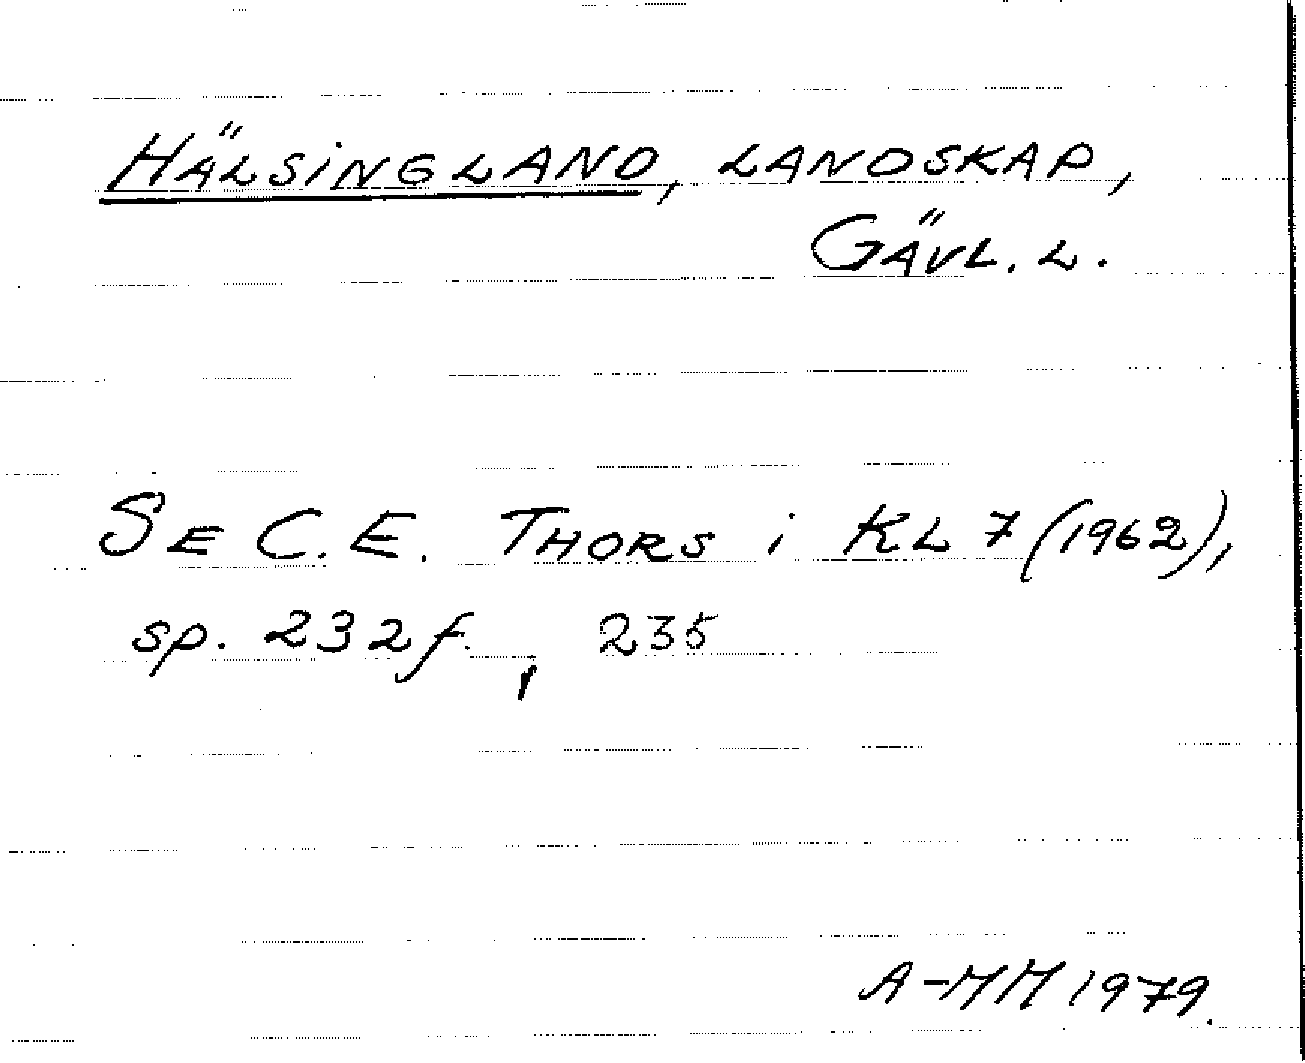 HÄLSINGLAND, LANDSKAP,
GÄVL. L.
SE C.E. THORS i KL 7 (1962),
sp. 232f., 235
A-MM 1979.